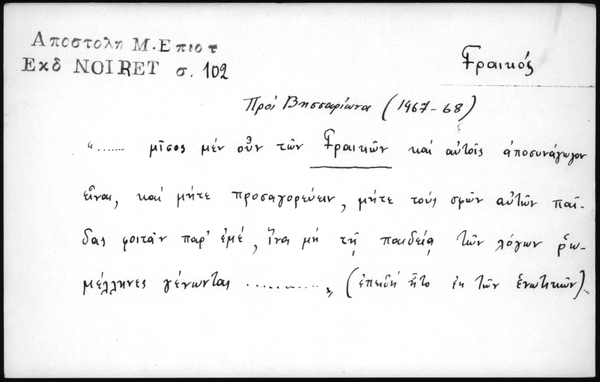 Αποστολη Μ. Επιστ
Εκδ NOIRET σ. 102
Γραικός
Πρός Βησσαρίωνα (1467-68)
"....... μῖσος μέν οὖν τῶν Γραικῶν καί αὐτοῖς ἀποσυνάγωγον
εἶναι, καί μήτε προσαγορεύειν, μήτε τούς σφῶν αὐτῶν παῖ-
δας φοιτᾶν παρ' ἐμέ, ἵνα μή τῇ παιδείᾳ τῶν λόγων ῥω-
μέλληνες γένωνται ............, (ἐπειδή ἦτο ἐκ τῶν ἑνωτικῶν).